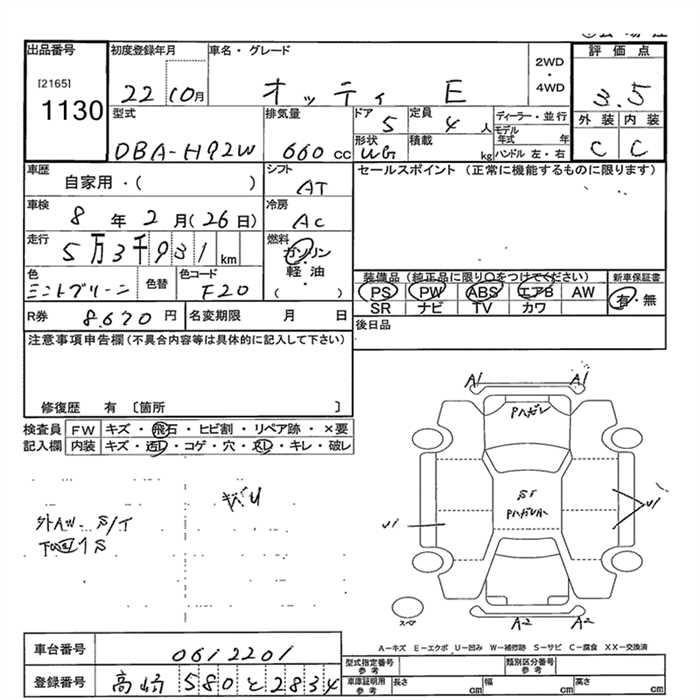 出品番号 初度登録年月 車名・グレード 2WD・4WD 評価点
[2165] 1130 22 10月 オッティ E 3.5
型式 排気量 ドア 5 定員 4人 ディーラー・並行 外装 内装
DBA-H92W 660cc 形状 積載 kg モデル年式 年 ハンドル 左・右 C C
車歴 自家用・( ) シフト AT セールスポイント (正常に機能するものに限ります)
車検 8年2月(26日) 冷房 AC
走行 5万3千931km 燃料 ガソリン・軽油・( )
色 ミントグリーン 色替 色コード F20 装備品 (純正品に限り○をつけてください) 新車保証書
PS PW ABS エアB AW 有・無
SR ナビ TV カワ
R券 8.670円 名変期限 月 日 後日品
注意事項申告欄(不具合内容等は具体的に記入して下さい)
修復歴 有 〔箇所 〕
検査員 FW キズ・飛石・ヒビ割・リペア跡・×要
記入欄 内装 キズ・汚レ・コゲ・穴・スレ・キレ・破レ
A1 A1
Pハガレ
U1 U1
A2 A2
スペア
A-キズ E-エクボ U-凹み W-補修跡 S-サビ C-腐食 XX-交換済
車台番号 0612201
登録番号 高崎 580 と 2834
型式指定番号 参考 類別区分番号 参考
車庫証明用 参考 長さ cm 幅 cm 高さ cm